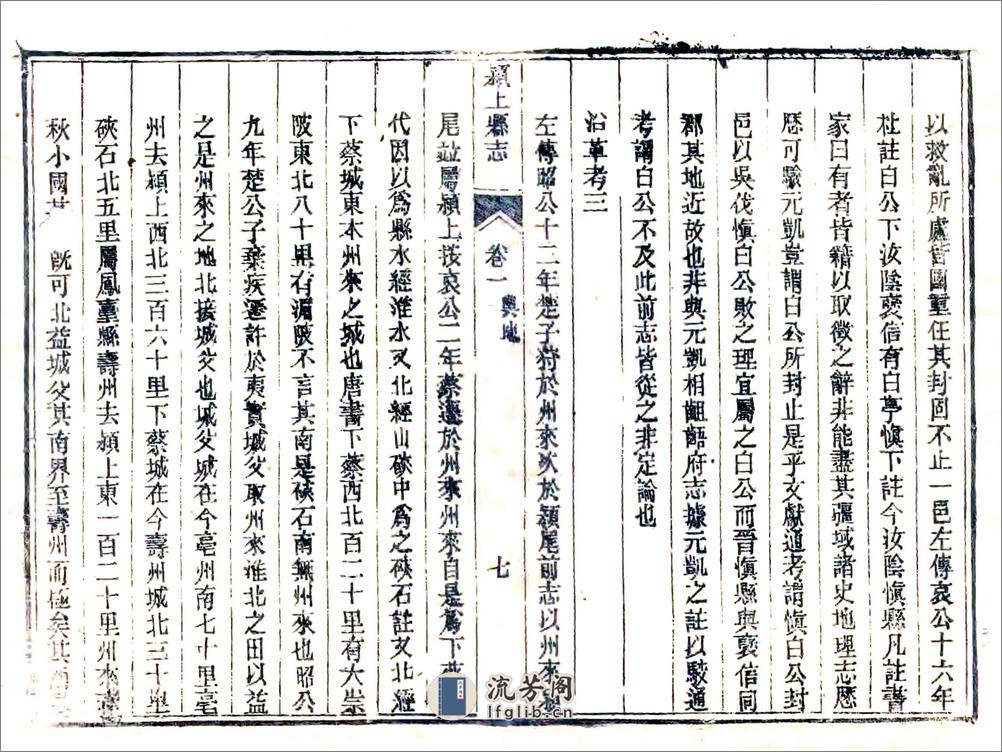 以救亂所處皆國重任其封固不止一邑左傳哀公十六年
杜註白公下汝陰襃信有白亭愼下註今汝陰愼縣凡註書
家曰有者皆籍以取徵之辭非能盡其疆域諸史地理志歷
歷可驗元凱豈謂白公所封止是乎文獻通考謂愼白公封
邑以吳伐愼白公敗之理宜屬之白公而晉愼縣與襃信同
郡其地近故也非與元凱相齟齬府志據元凱之註以駁通
考謂白公不及此前志皆從之非定論也
沿革考三
左傳昭公十二年楚子狩於州來次於潁尾前志以州來
潁上縣志
卷一
輿地
七
尾竝屬潁上按哀公二年蔡遷於州來州來自是爲下蔡
代因以爲縣水經淮水又北經山硤中爲之硤石註又北經
下蔡城東本州來之城也唐書下蔡西北百二十里有大崇
陂東北八十里有湄陂不言其南是硤石南無州來也昭公
九年楚公子棄疾遷許於夷實城父取州來淮北之田以益
之是州來之地北接城父也城父城在今亳州南七十里亳
州去潁上西北三百六十里下蔡城在今壽州城北三十里
硤石北五里屬鳳臺縣壽州去潁上東一百二十里州來
秋小國 旣可北益城父其南界至壽州而極矣其
流芳阁
lfglib.cn